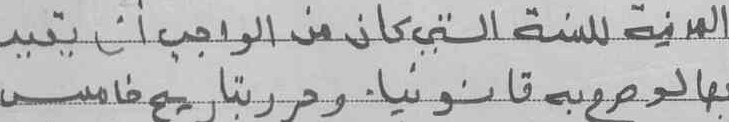 المدنية للسنة التي كان من الواجب أن يقيد
بها لو صرح به قانونيا. وحرر بتاريخ خامس